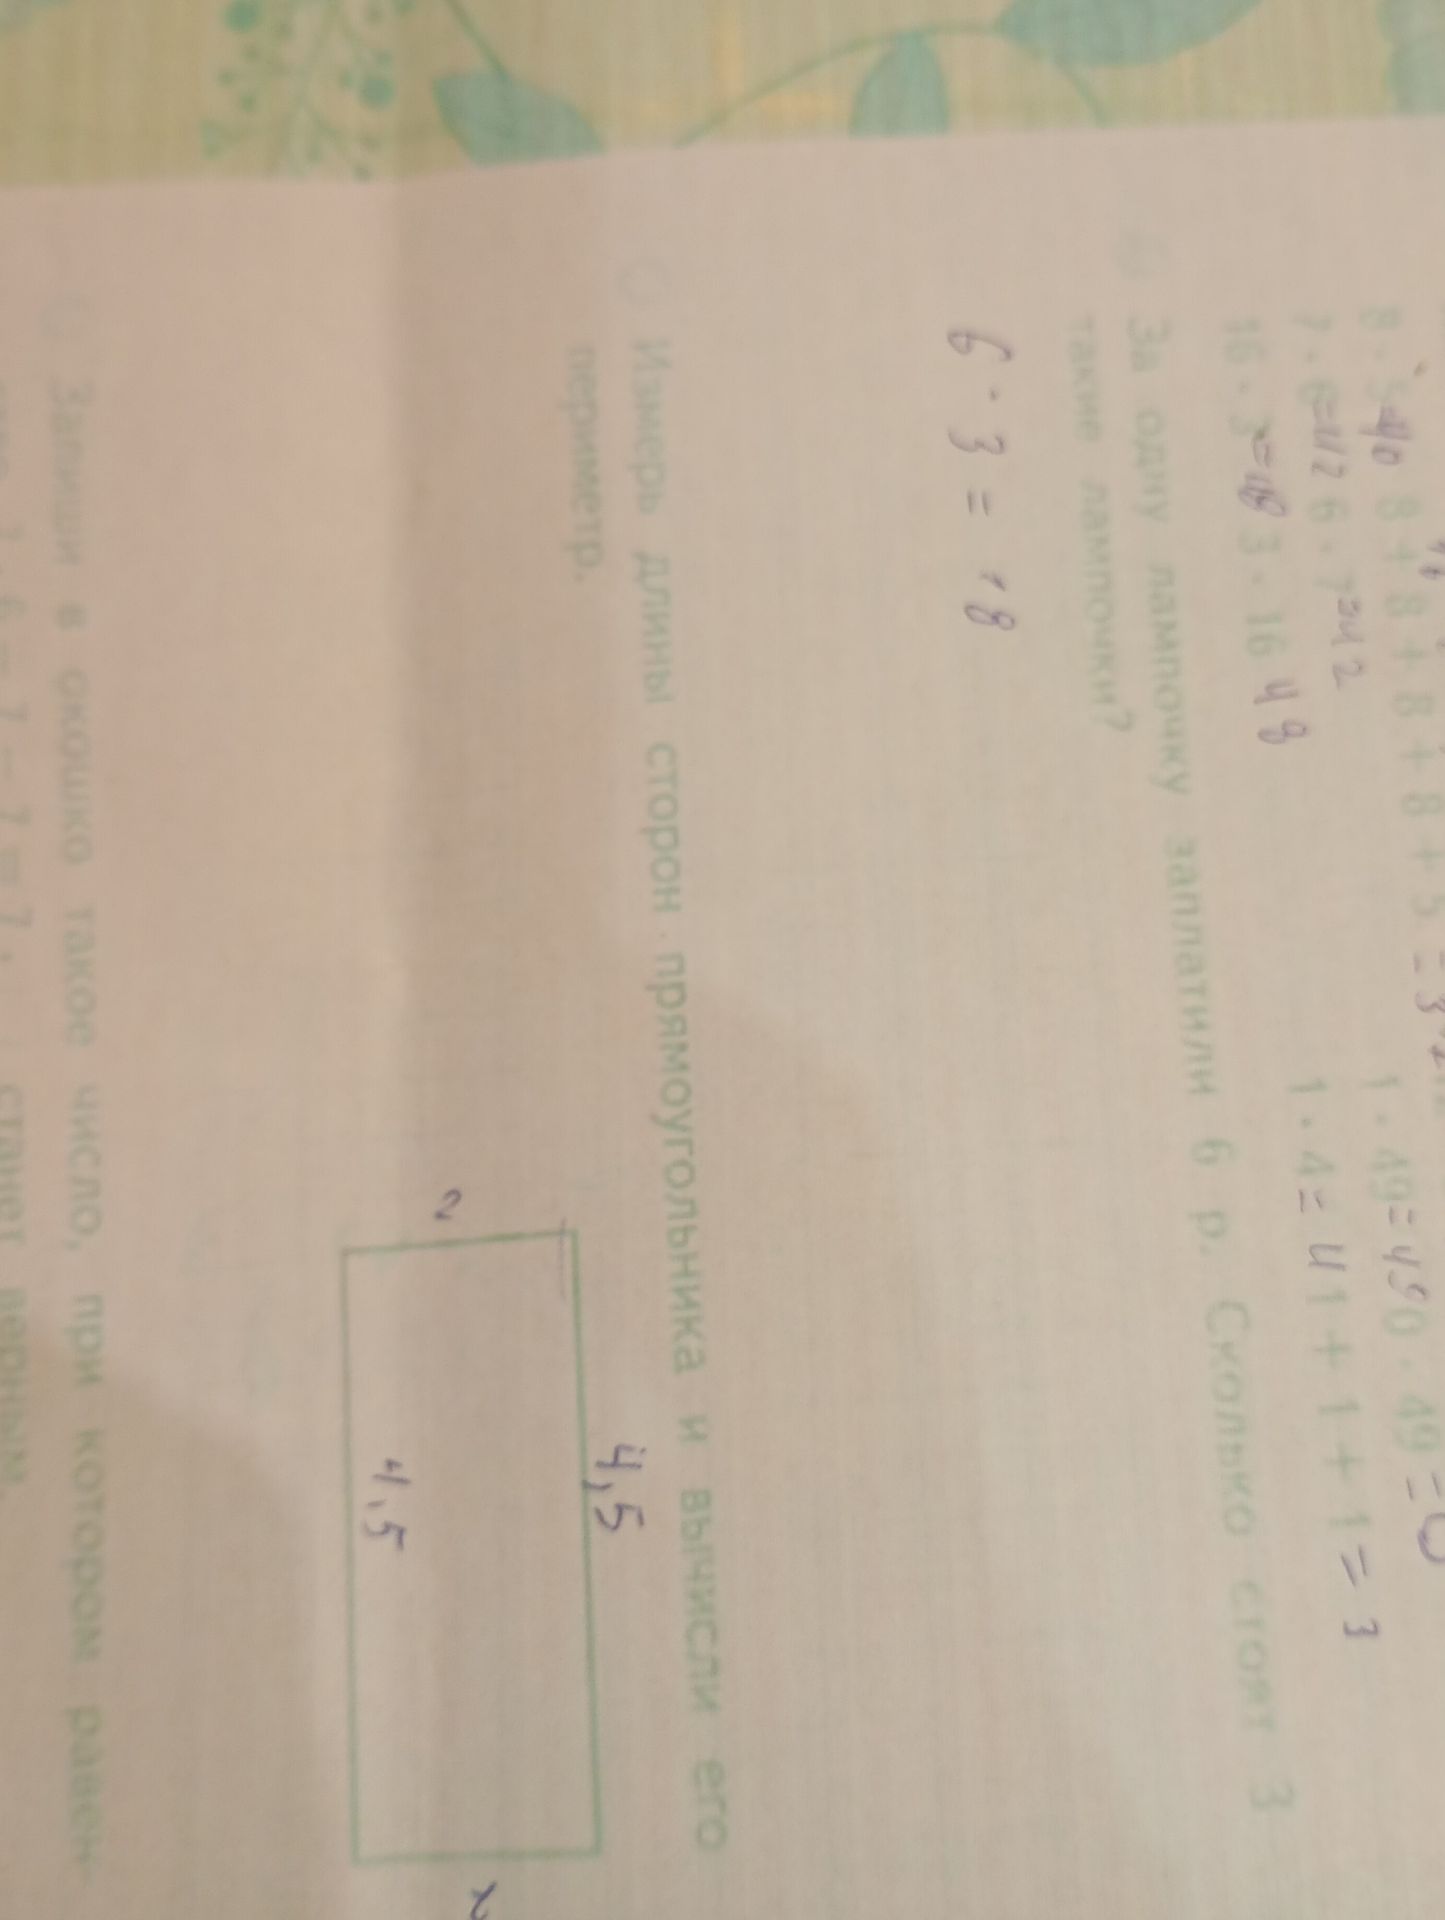 8 + 8 + 8 + 8 + 5 =
1 · 49 = 49 0 · 49 = 0
7 · 6 = 42 6 · 7 = 42
1 · 4 = 4 1 + 1 + 1 = 3
16 · 3 = 48 3 · 16 48
За одну лампочку заплатили 6 р. Сколько стоят 3
такие лампочки?
6 · 3 = 18
Измерь длины сторон прямоугольника и вычисли его
периметр.
4,5
2
2
4,5
Запиши в окошко такое число, при котором равен-
станет верным.